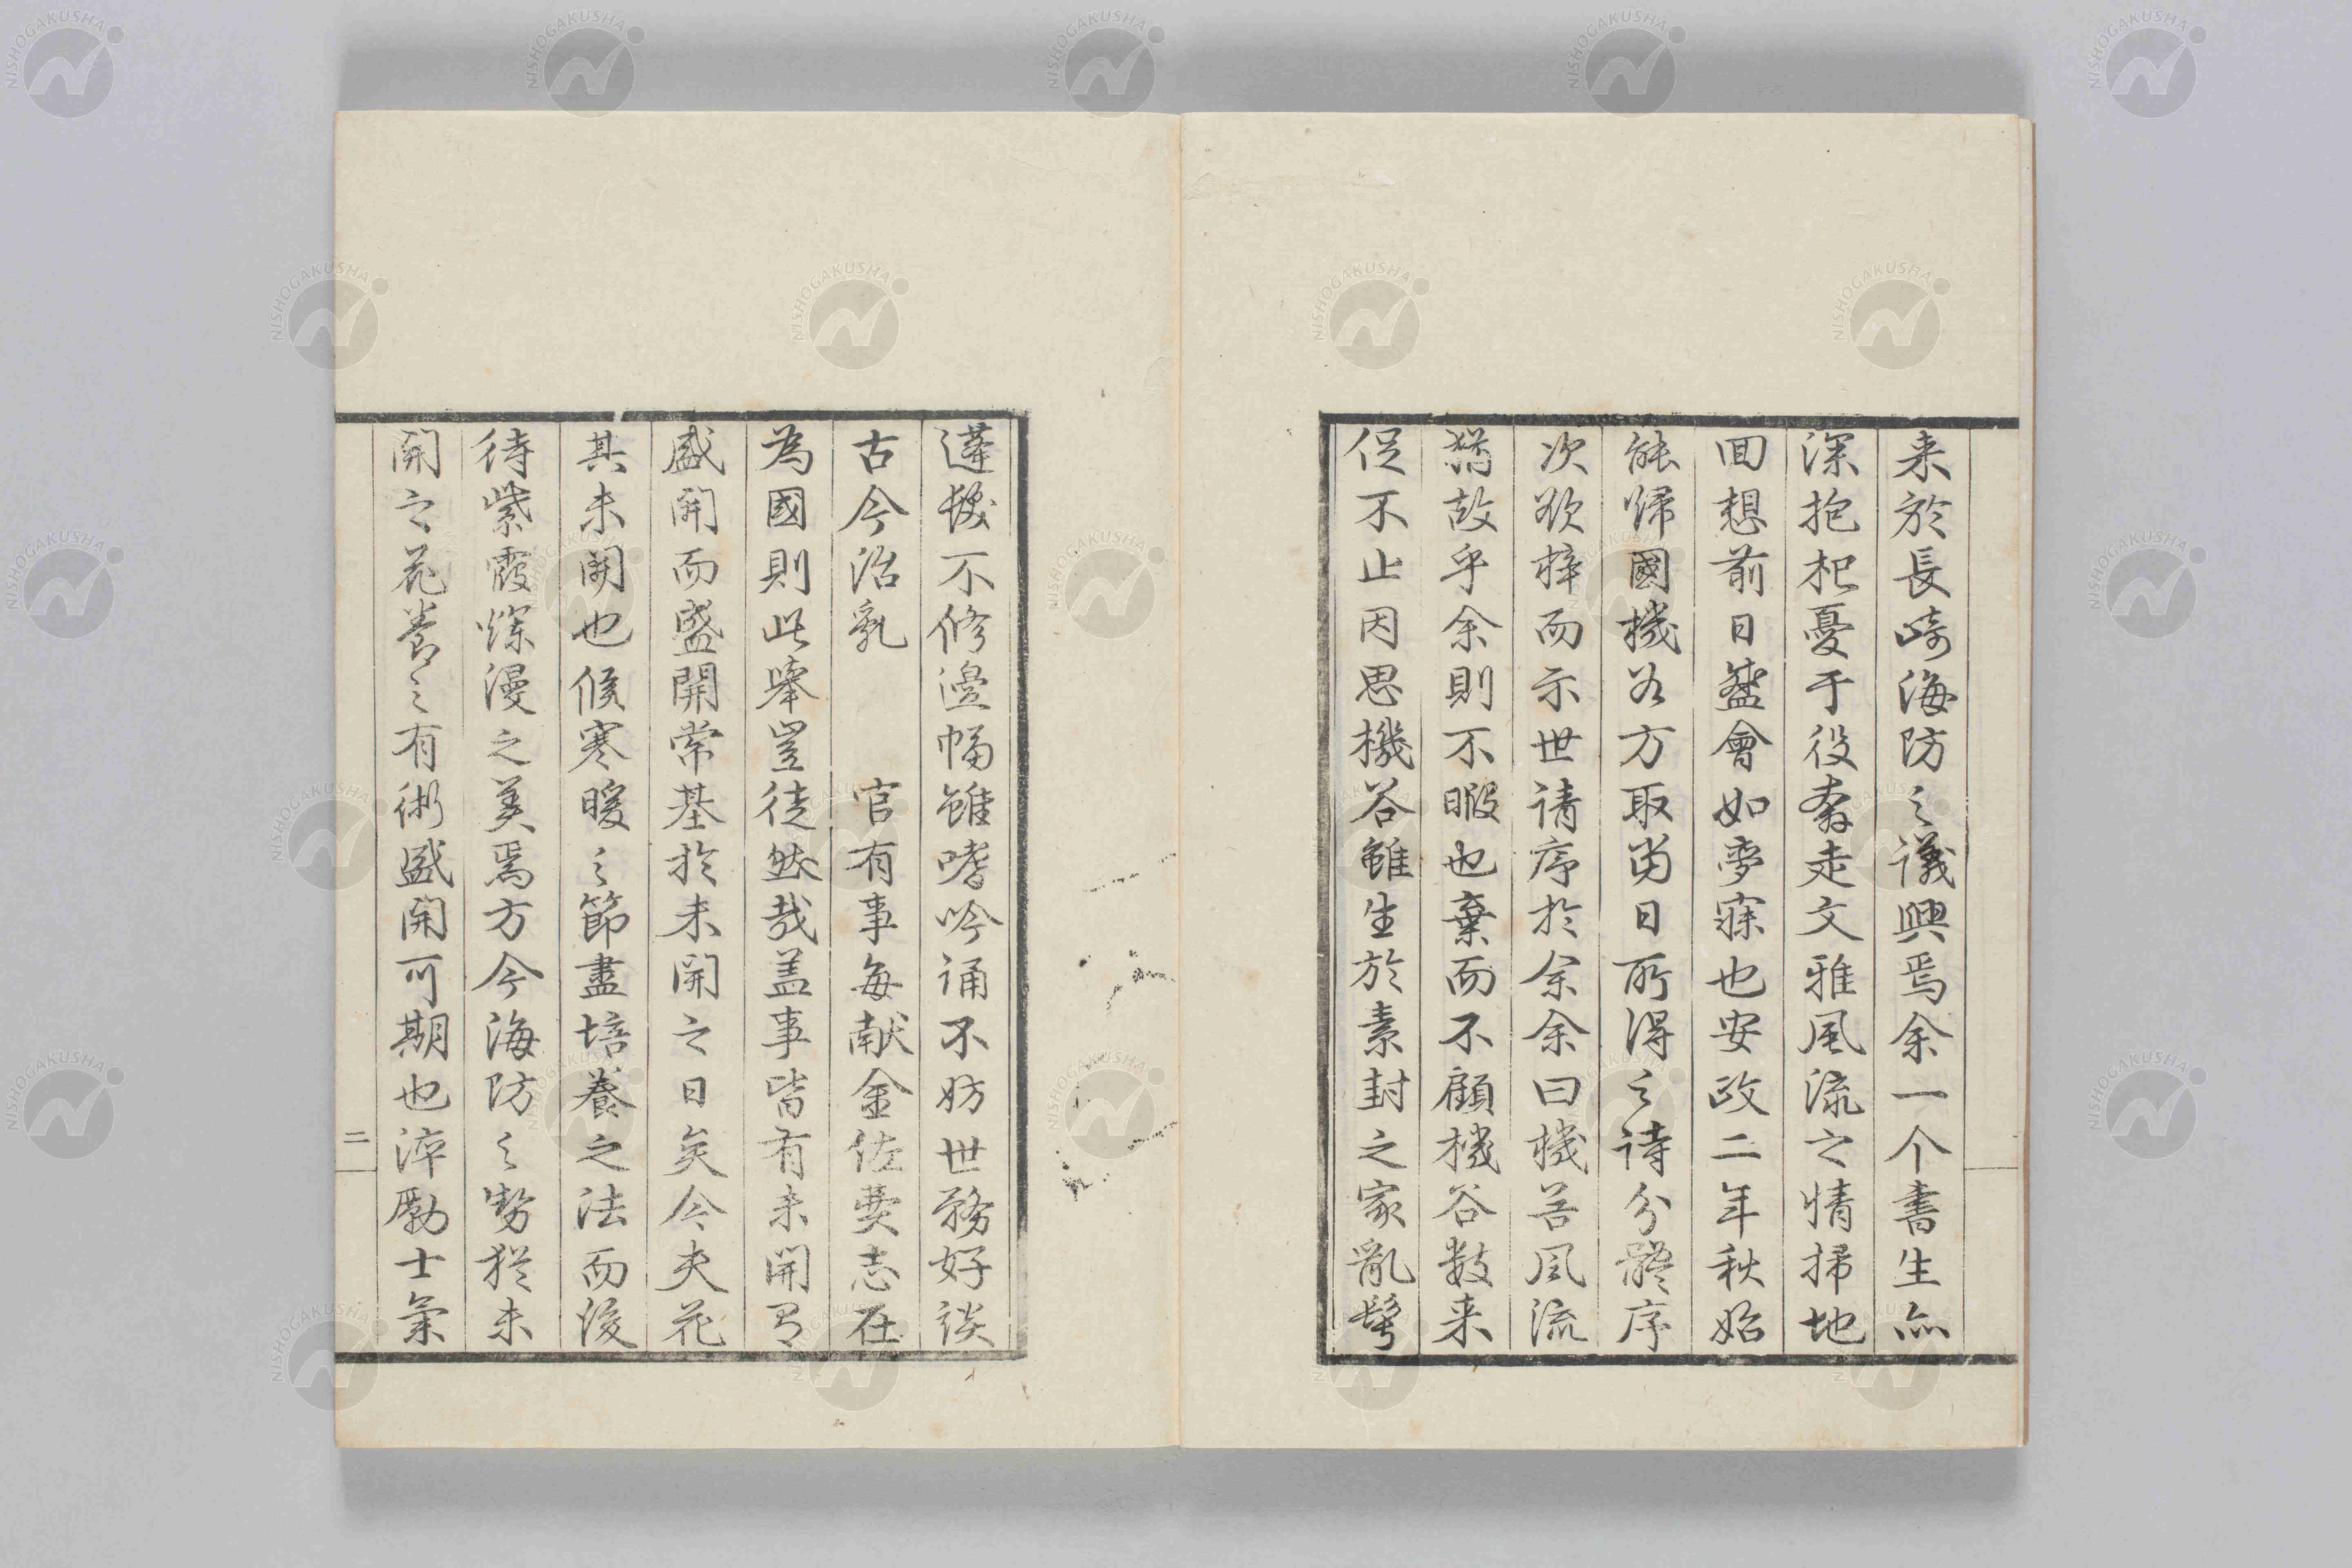 来於長崎海防之議興焉余一个書生亦
深抱杞憂于役奔走文雅風流之情掃地
回想前日盛會如夢寐也安政二年秋始
能帰國機谷方取当日所得之詩分體序
次欲梓而示世請序於余余曰機谷風流
猶故乎余則不暇也棄而不顧機谷数来
促不止因思機谷雖生於素封之家亂髩
蓬髪不修邊幅雖嗜吟誦不妨世務好談
古今治乱 官有事毎献金佐費志在
為國則此舉豈徒然哉盖事皆有未開有
盛開而盛開常基於未開之日矣今夫花
其未開也候寒暖之節盡培養之法而後
待紫霞爛漫之美焉方今海防之勢猶未
開之花養之有術盛開可期也淬勵士氣
二
NISHOGAKUSHA